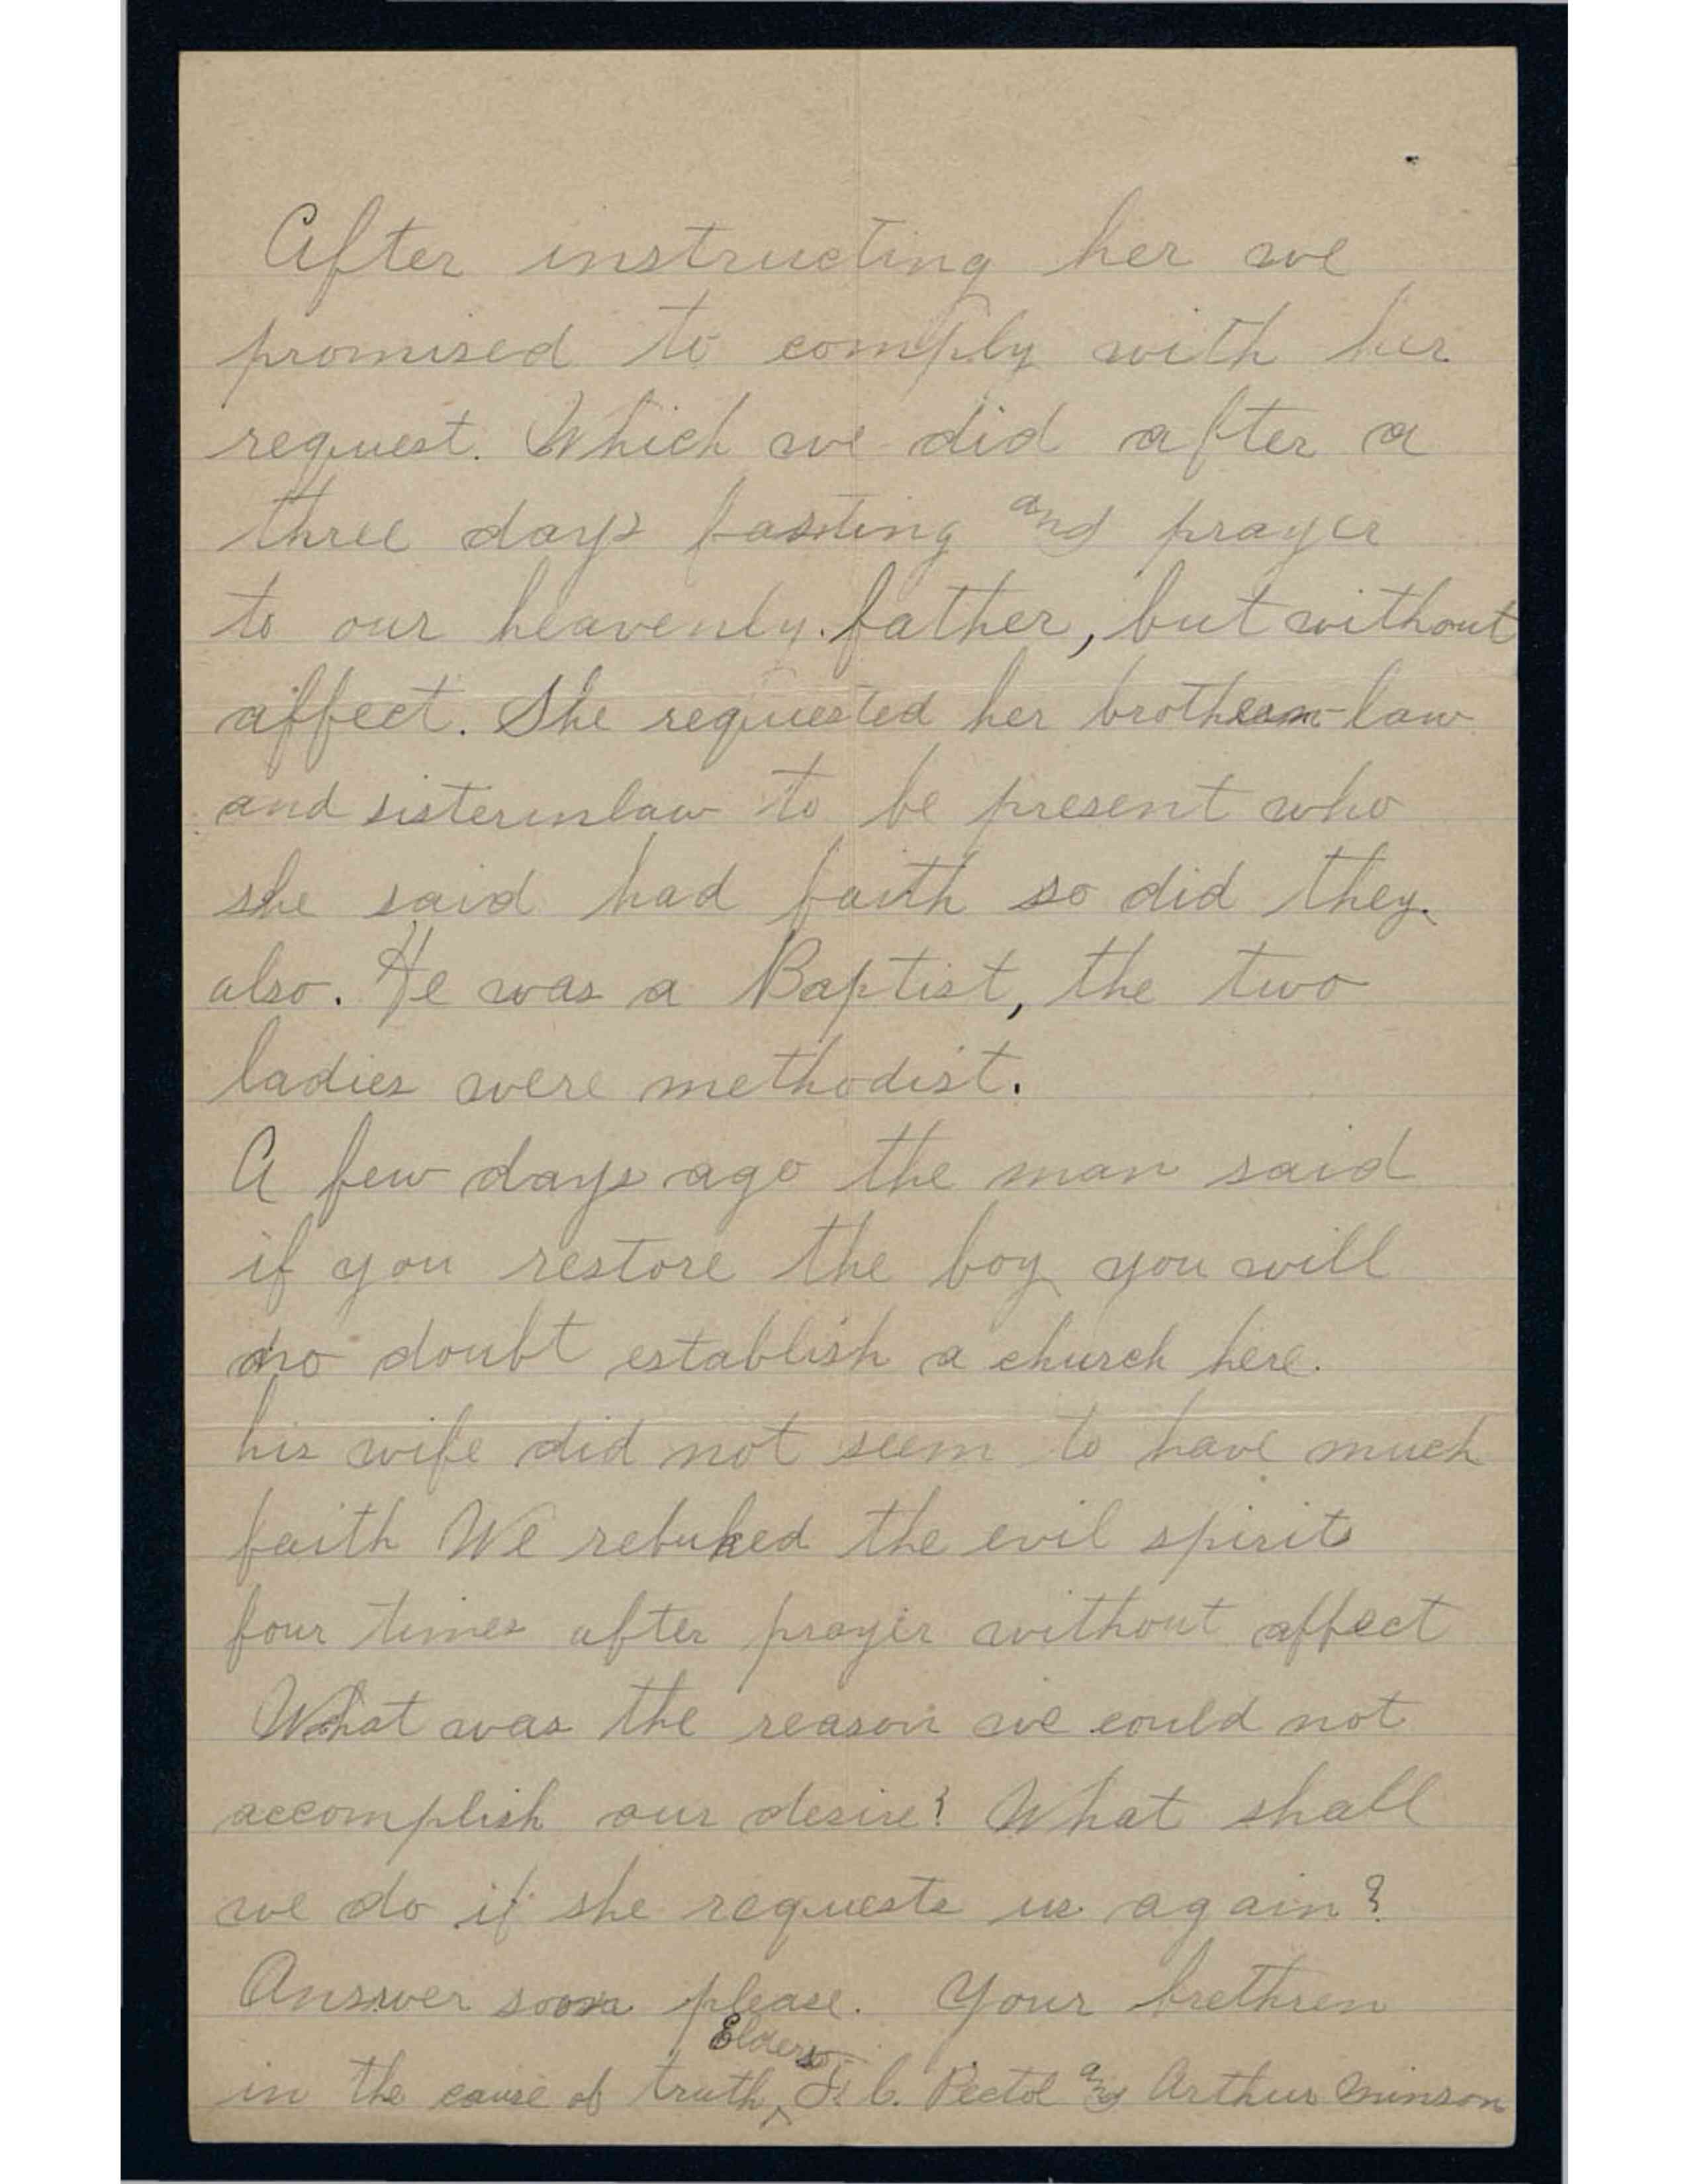 After instructing her we
promised to comply with her
request. Which we did after a
three days fasting and prayer
to our heavenly father, but without
affect. She requested her brotherin-law
and sisterinlaw to be present who
she said had faith so did they
also. He was a Baptist, the two
ladies were methodist.
A few days ago the man said
if you restore the boy you will
no doubt establish a church here.
his wife did not seem to have much
faith We rebuked the evil spirits
four times after prayer without affect
What was the reason we could not
accomplish our desire? What shall
we do if she requests us again?
Answer soon please. Your brethren
Elders
in the cause of truth, C. Pectol and Arthur Minson